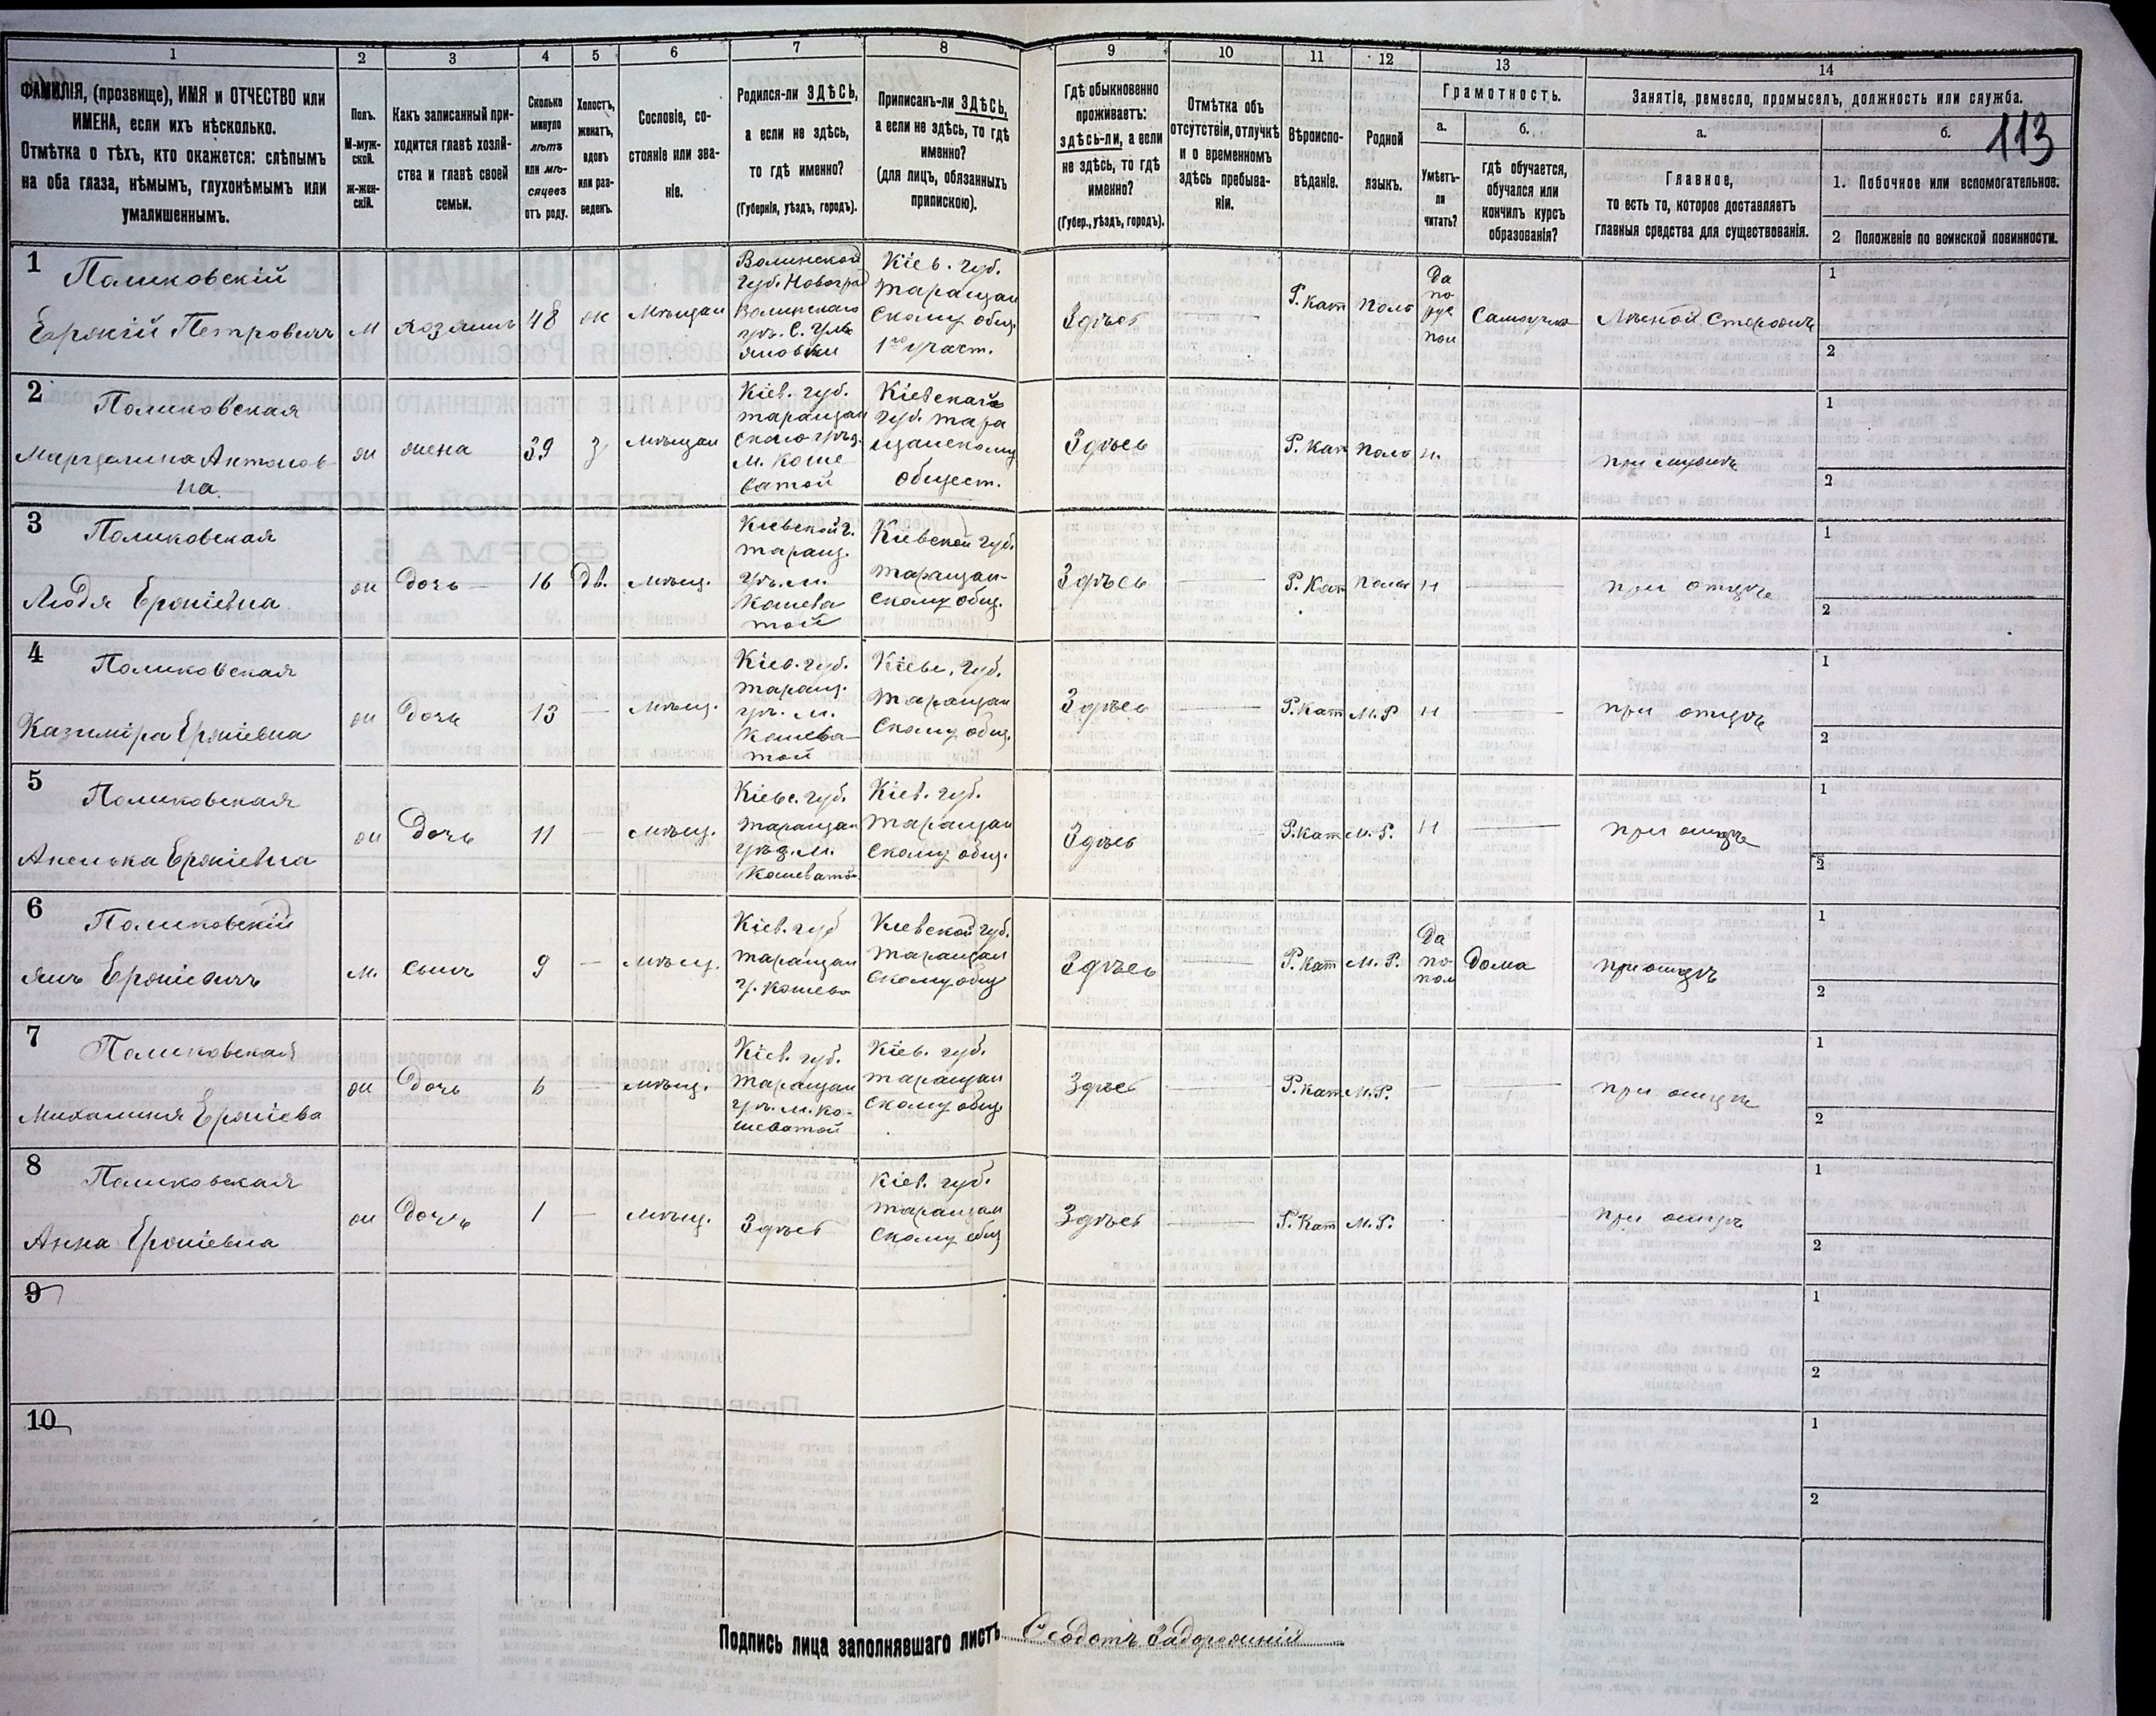 1 2 3 4 5 6 7 8 9 10 11 12 13 14
113
ФАМИЛІЯ, (прозвище), ИМЯ и ОТЧЕСТВО или
ИМЕНА, если ихъ нѣсколько.
Отмѣтка о тѣхъ, кто окажется: слѣпымъ
на оба глаза, нѣмымъ, глухонѣмымъ или
умалишеннымъ.
Полъ.
М-муж-
ской.
ж-жен-
скій.
Какъ записанный при-
ходится главѣ хозяй-
ства и главѣ своей
семьи.
Сколько
минуло
лѣтъ
или мѣ-
сяцевъ
отъ роду.
Холостъ,
женатъ,
вдовъ
или раз-
веденъ.
Сословіе, со-
стояніе или зва-
ніе.
Родился-ли ЗДѢСЬ,
а если не здѣсь,
то гдѣ именно?
(Губернія, уѣздъ, городъ).
Приписанъ-ли ЗДѢСЬ,
а если не здѣсь, то гдѣ
именно?
(для лицъ, обязанныхъ
припискою).
Гдѣ обыкновенно
проживаетъ:
здѣсь-ли, а если
не здѣсь, то гдѣ
именно?
(Губер., уѣздъ, городъ).
Отмѣтка объ
отсутствіи, отлучкѣ
и о временномъ
здѣсь пребыва-
ніи.
Вѣроиспо-
вѣданіе.
Родной
языкъ.
Грамотность.
а.
Умѣетъ-
ли
читать?
б.
гдѣ обучается,
обучался или
кончилъ курсъ
образованія?
Занятіе, ремесло, промыселъ, должность или служба.
а.
Главное,
то есть то, которое доставляетъ
главныя средства для существованія.
б.
1. Побочное или вспомогательное.
2 Положеніе по воинской повинности.
1
Поликовскій
Петровичъ
м
хозяинъ
48
ж
Мѣщан
Волинской
губ. Новоград
Волинскаго
Кіев. губ.
таращан
скому общ.
1го участ.
Здѣсь
Р. Кат
Поль
Да
по
рус
пол
Самоучка
Лѣсной Сторожъ
1
2
2
Поликовская
Антонов
на
ж
жена
39
з
мѣщан
Кіев. губ.
таращан
ского уѣз.
м. Коше
ватой
Кіевской
губ. тара
щанскому
общест.
Здѣсь
Р. Кат
Поль
н.
при мужѣ
1
2
3
Поликовская
ж
дочь
16
Дв.
мѣщ.
Кіевской г.
таращ.
уѣ. м.
Кошева
той
Кіевской губ.
таращан-
скому общ.
Здѣсь
Р. Кат
Поль
н
при отцѣ
1
2
4
Поликовская
Казиміра
ж
дочь
13
мѣщ.
Кіев. губ.
таращ.
уѣ. м.
Кошева-
той
Кіевс. губ.
таращан
скому общ.
Здѣсь
Р. Кат
М. Р
н
при отцѣ
1
2
5
Поликовская
ж
дочь
11
мѣщ.
Кіевс. губ.
таращан
уѣз. м.
Кошеватой
Кіев. губ.
таращан
скому общ.
Здѣсь
Р. Кат
М. Р.
н
при отцѣ
1
2
6
Поликовскій
Янъ
м.
сынъ
9
мѣщ.
Кіев. губ
таращан
у. Кошева
Кіевской губ.
таращан
скому общ
Здѣсь
Р. Кат
М. Р.
Да
по
пол
дома
при отцѣ
1
2
7
Поликовская
ж
дочь
6
мѣщ.
Кіев. губ.
таращан
уѣ. м. Ко-
шеватой
Кіев. губ.
таращан
скому общ.
Здѣсь
Р. Кат
М. Р.
при отцѣ
1
2
8
Поликовская
Анна
ж
дочь
1
мѣщ.
Здѣсь
Кіев. губ.
таращан
скому общ
Здѣсь
Р. Кат
М. Р.
при отцѣ
1
2
9
1
2
10
1
2
Подпись лица заполнявшаго листъ Ѳеодотъ Задорожній